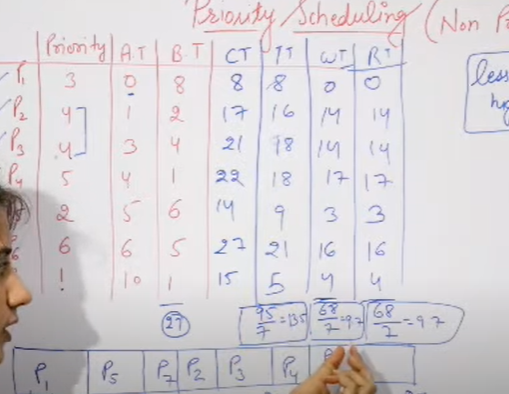 Priority Scheduling (Non
Priority A.T B.T CT TT WT RT
P1 3 0 8 8 8 0 0
P2 4 1 2 17 16 14 14
P3 4 3 4 21 18 14 14
P4 5 4 1 22 18 17 17
2 5 6 14 9 3 3
6 6 5 27 21 16 16
1 10 1 15 5 4 4
27 95/7=13.5 68/7=9.7 68/7=9.7
P1 P5 P7 P2 P3 P4
less